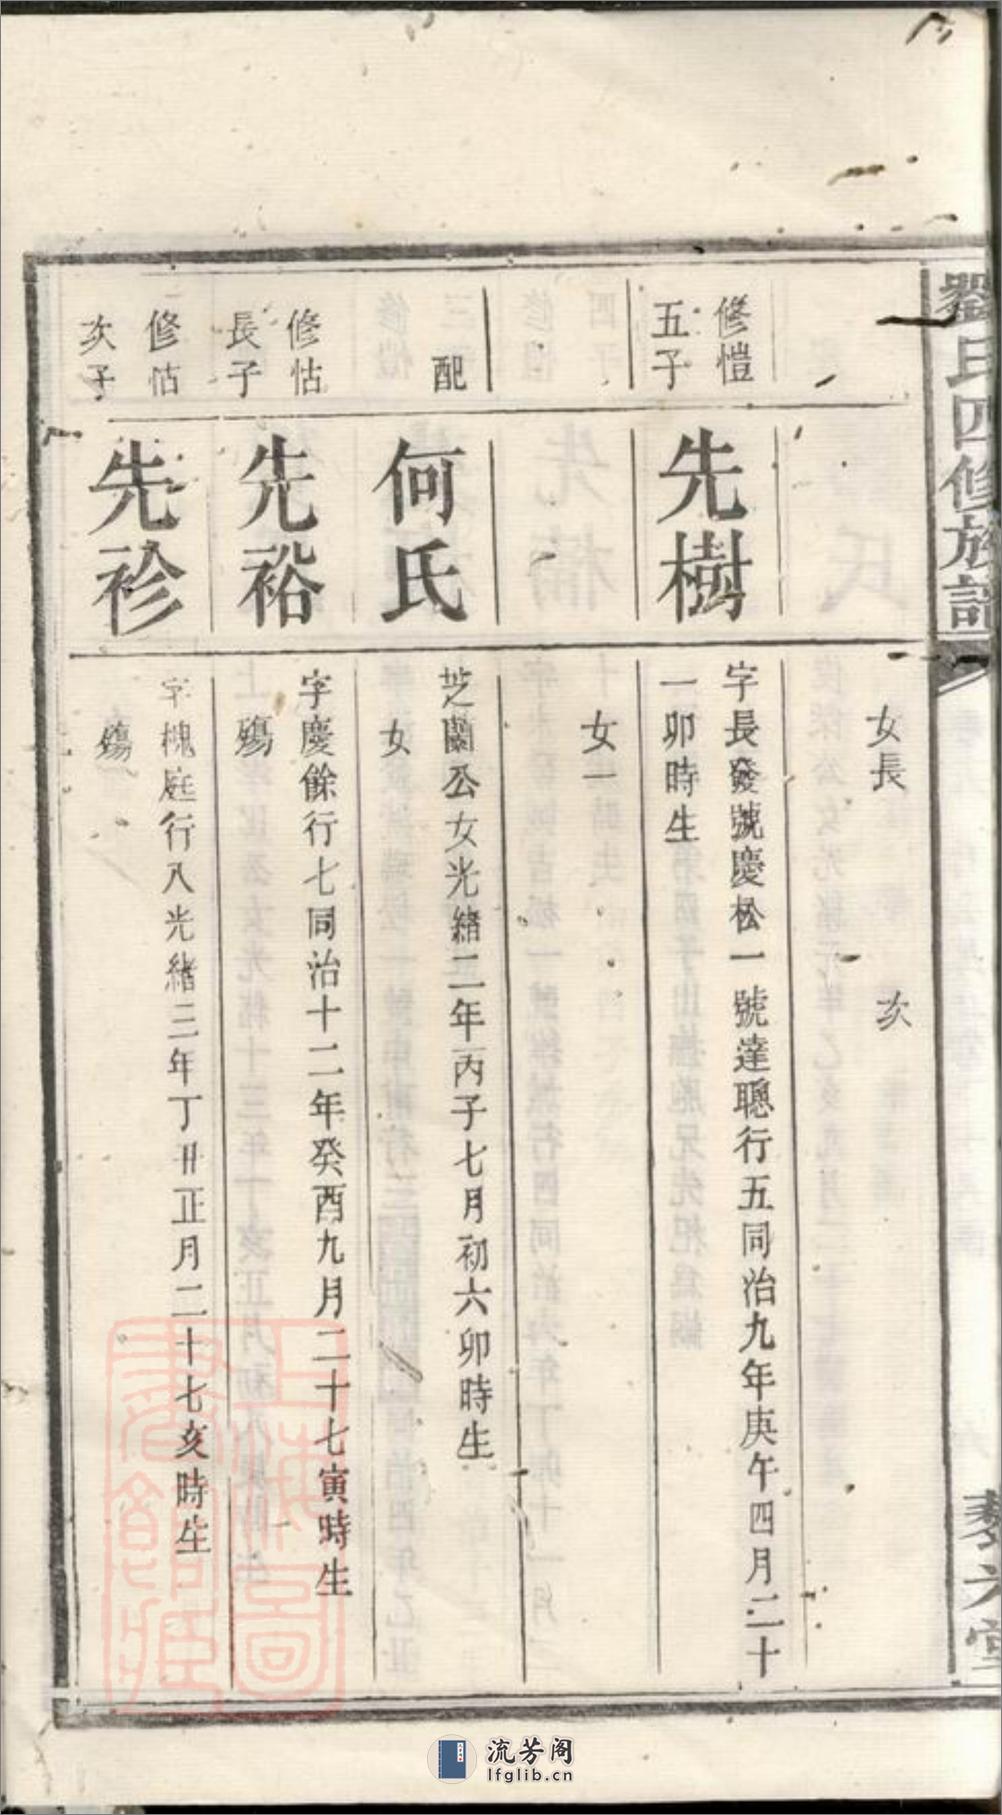 劉氏四修族譜
藜六堂
女長 次
修愷
五子
先樹
字長發號慶松一號達聰行五同治九年庚午四月二十
一卯時生
女一
配
何氏
芝蘭公女光緒二年丙子七月初六卯時生
女
修怙
長子
先裕
字慶餘行七同治十二年癸酉九月二十七寅時生
殤
修怙
次子
先袗
字槐庭行八光緒三年丁丑正月二十七亥時生
殤
上海圖書館藏
流芳阁
lfglib.cn